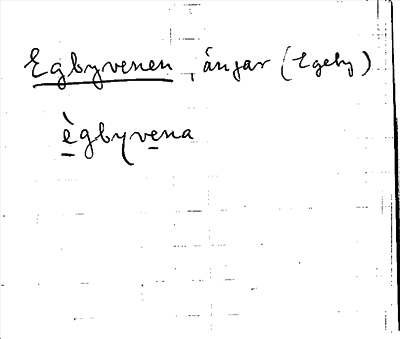 Egbyvenen, ängar (Egeby)
ègbyvena